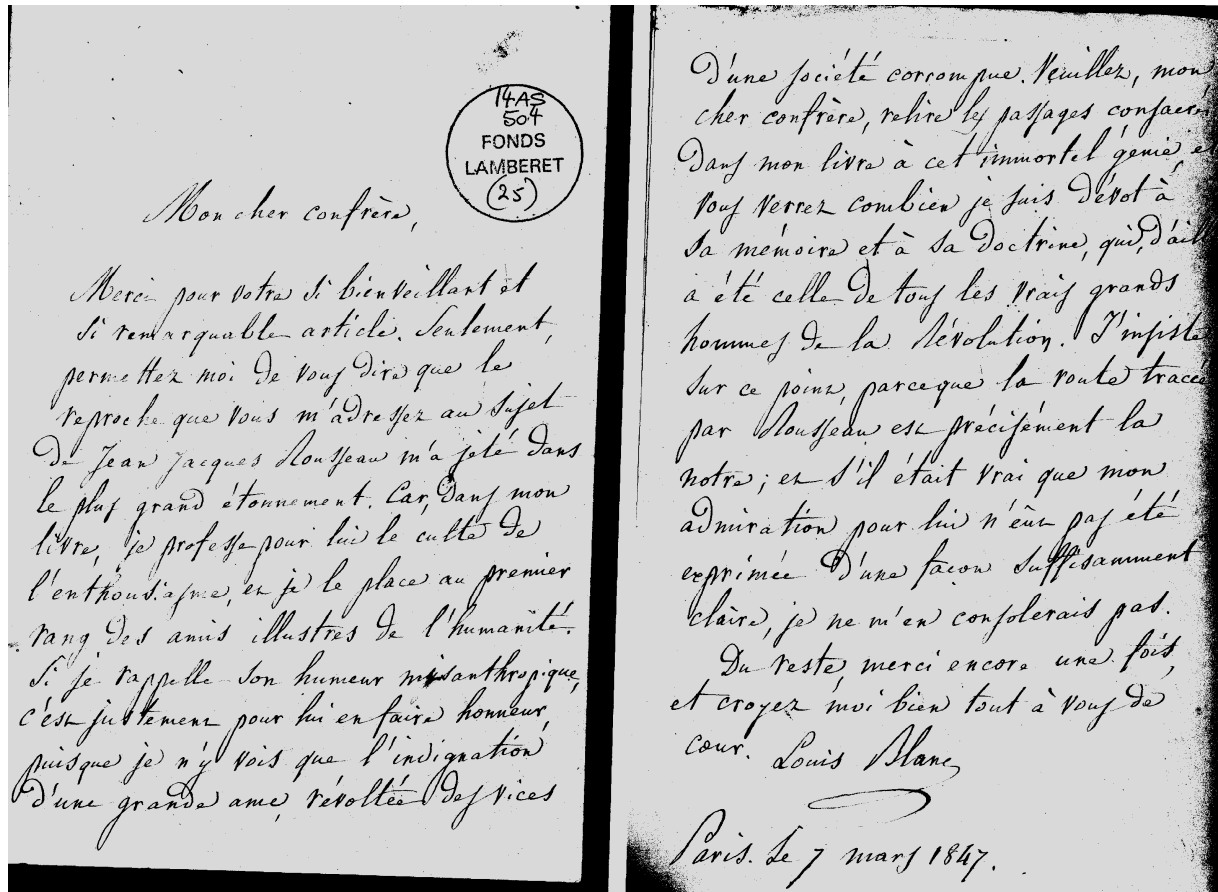 14AS
504
FONDS
LAMBERET
(25)
Mon cher confrère,
Merci pour votre si bienveillant et
si remarquable article. Seulement,
permettez moi de vous dire que le
reproche que vous m'adressez au sujet
de Jean Jacques Rousseau m'a jeté dans
le plus grand étonnement. Car, dans mon
livre, je professe pour lui le culte de
l'enthousiasme, et je le place au premier
rang des amis illustres de l'humanité.
Si je rappelle son humeur misanthropique,
c'est justement pour lui en faire honneur,
puisque je n'y vois que l'indignation
d'une grande ame, révoltée des vices
D'une société corrompue. Veuillez, mon
cher confrère, relire les passages consacrés
dans mon livre à cet immortel génie, et
vous verrez combien je suis dévot à
sa mémoire et à sa doctrine, qui, d'aill
a été celle de tous les vrais grands
hommes de la Révolution. J'insiste
sur ce point, parceque la route tracée
par Rousseau est précisément la
notre; et s'il était vrai que mon
admiration pour lui n'eut pas été
exprimée d'une facon suffisamment
claire, je ne m'en consolerais pas.
Du reste, merci encore une fois,
et croyez moi bien tout à vous de
cœur. Louis Blanc
Paris. Le 7 mars 1847.